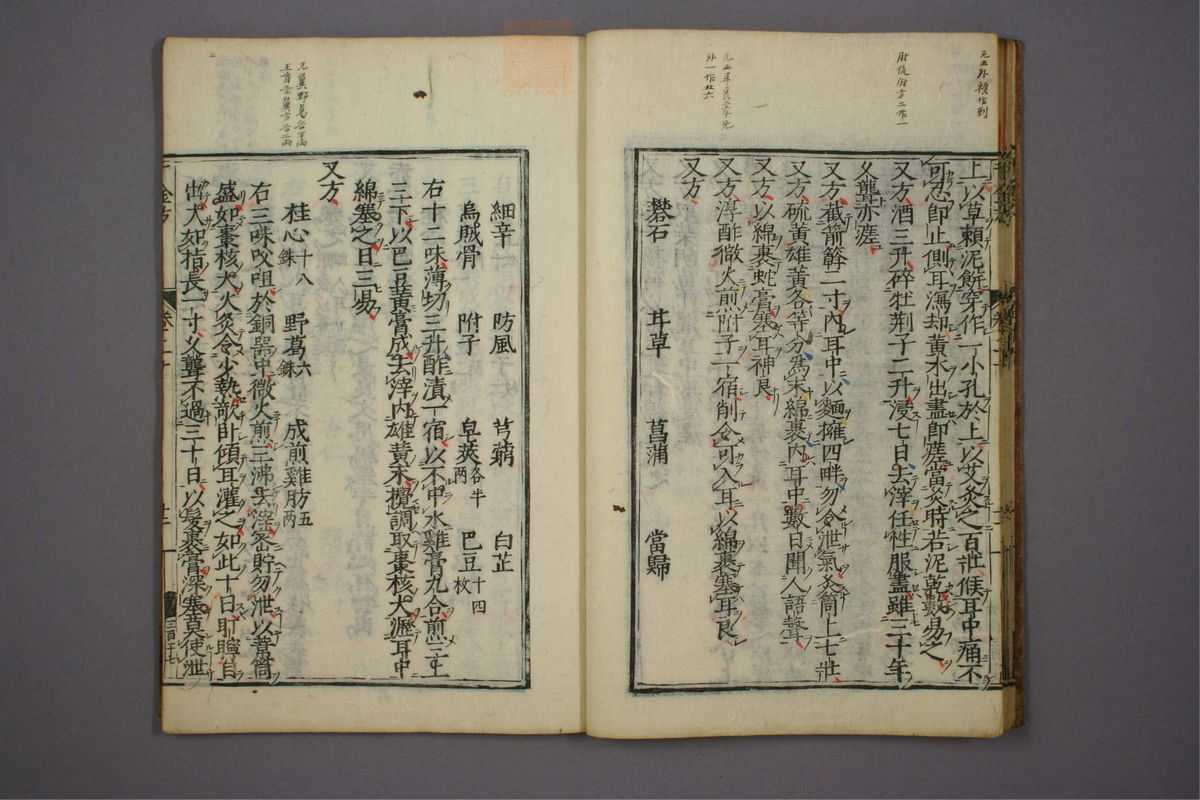 元正外類作剌
肘後附子二作一
外一作五六
上以草賴泥餅穿作一小孔於上以艾灸之百壯候耳中痛不
可忍即止側耳瀉却黃水出盡即瘥當灸時若泥乾數易之
又方酒三升碎牡荆子二升浸七日去滓任性服盡雖三十年
久聾亦瘥
又方截箭簳二寸內耳中以麵擁四畔勿令泄氣灸筒上七壯
又方硫黃雄黃各等分爲末綿裹內耳中數日聞人語聲
又方以綿裹蛇膏塞耳神良
又方淳酢微火煎附子一宿削令可入耳以綿裹塞耳良
又方
礬石 甘草 菖蒲 當歸
細辛 防風 芎藭 白芷
烏賊骨 附子 皂莢各半兩 巴豆十四枚
右十二味薄切三升酢漬一宿以不中水雞膏九合煎三上
三下以巴豆黃膏成去滓內雄黃末攪調取棗核大瀝耳中
綿塞之日三易
又方
桂心十八銖 野葛六銖 成煎雞肪五兩
右三味㕮咀於銅器中微火煎三沸去滓密貯勿泄以葦筒
盛如棗核大火炙令少熱欹卧傾耳灌之如此十日耵聹自
出大如指長一寸久聾不過三十日以髮裹膏深塞莫使泄
千金方
卷二十
三百二十七